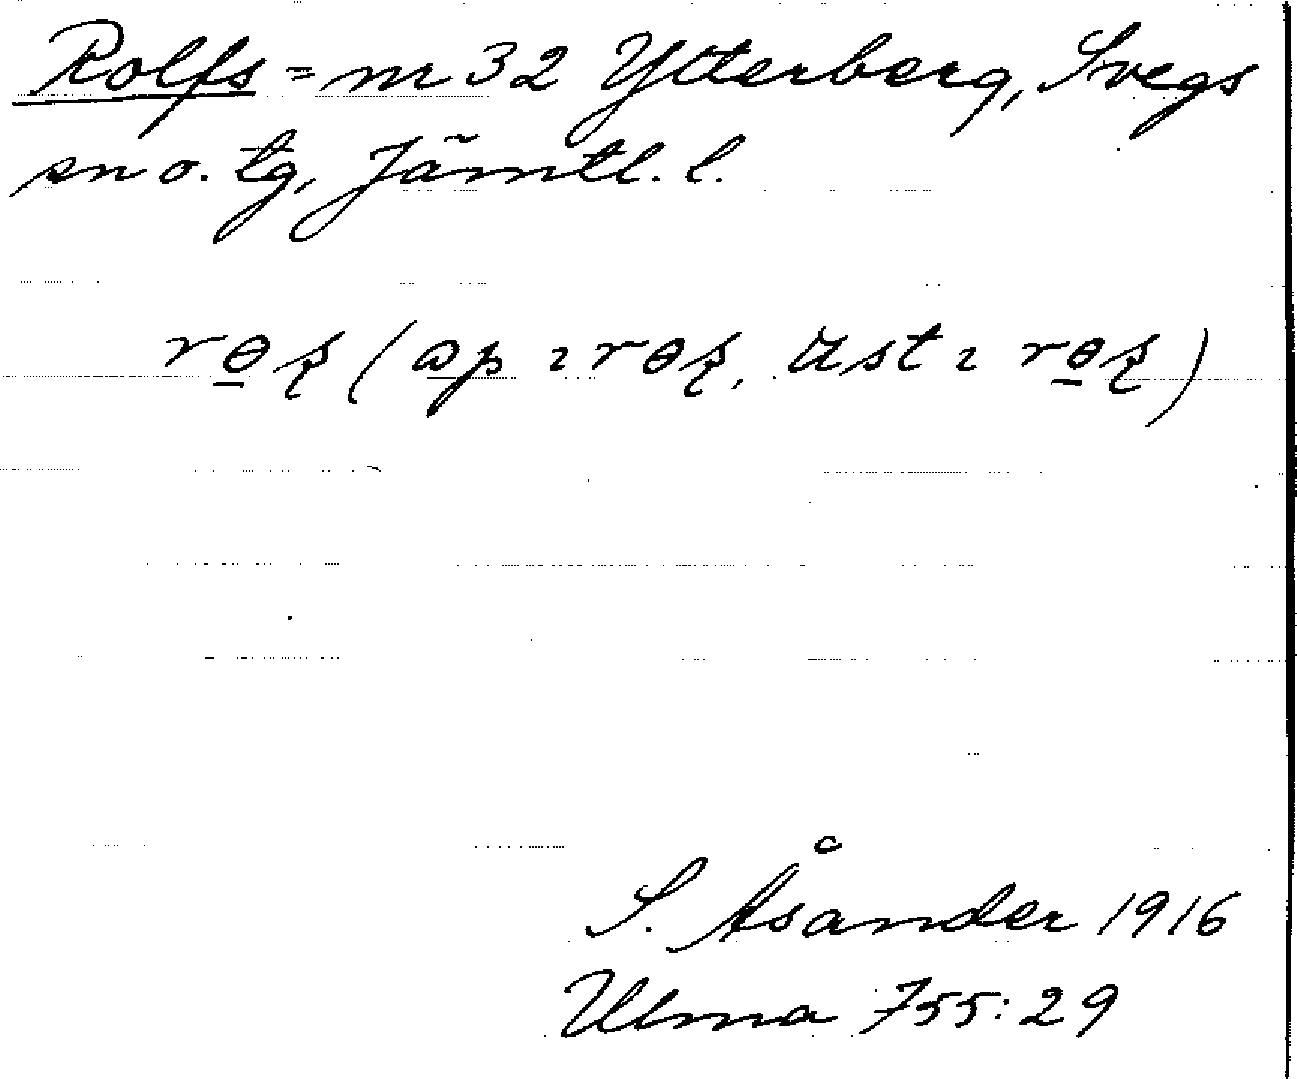 Rolfs = nr 32 Ytterberg, Svegs
sn o. tg, Jämtl. l.
rɵʂ (ap ı rɵʂ, ust ı rɵʂ)
S. Åsander 1916
Ulma 755:29